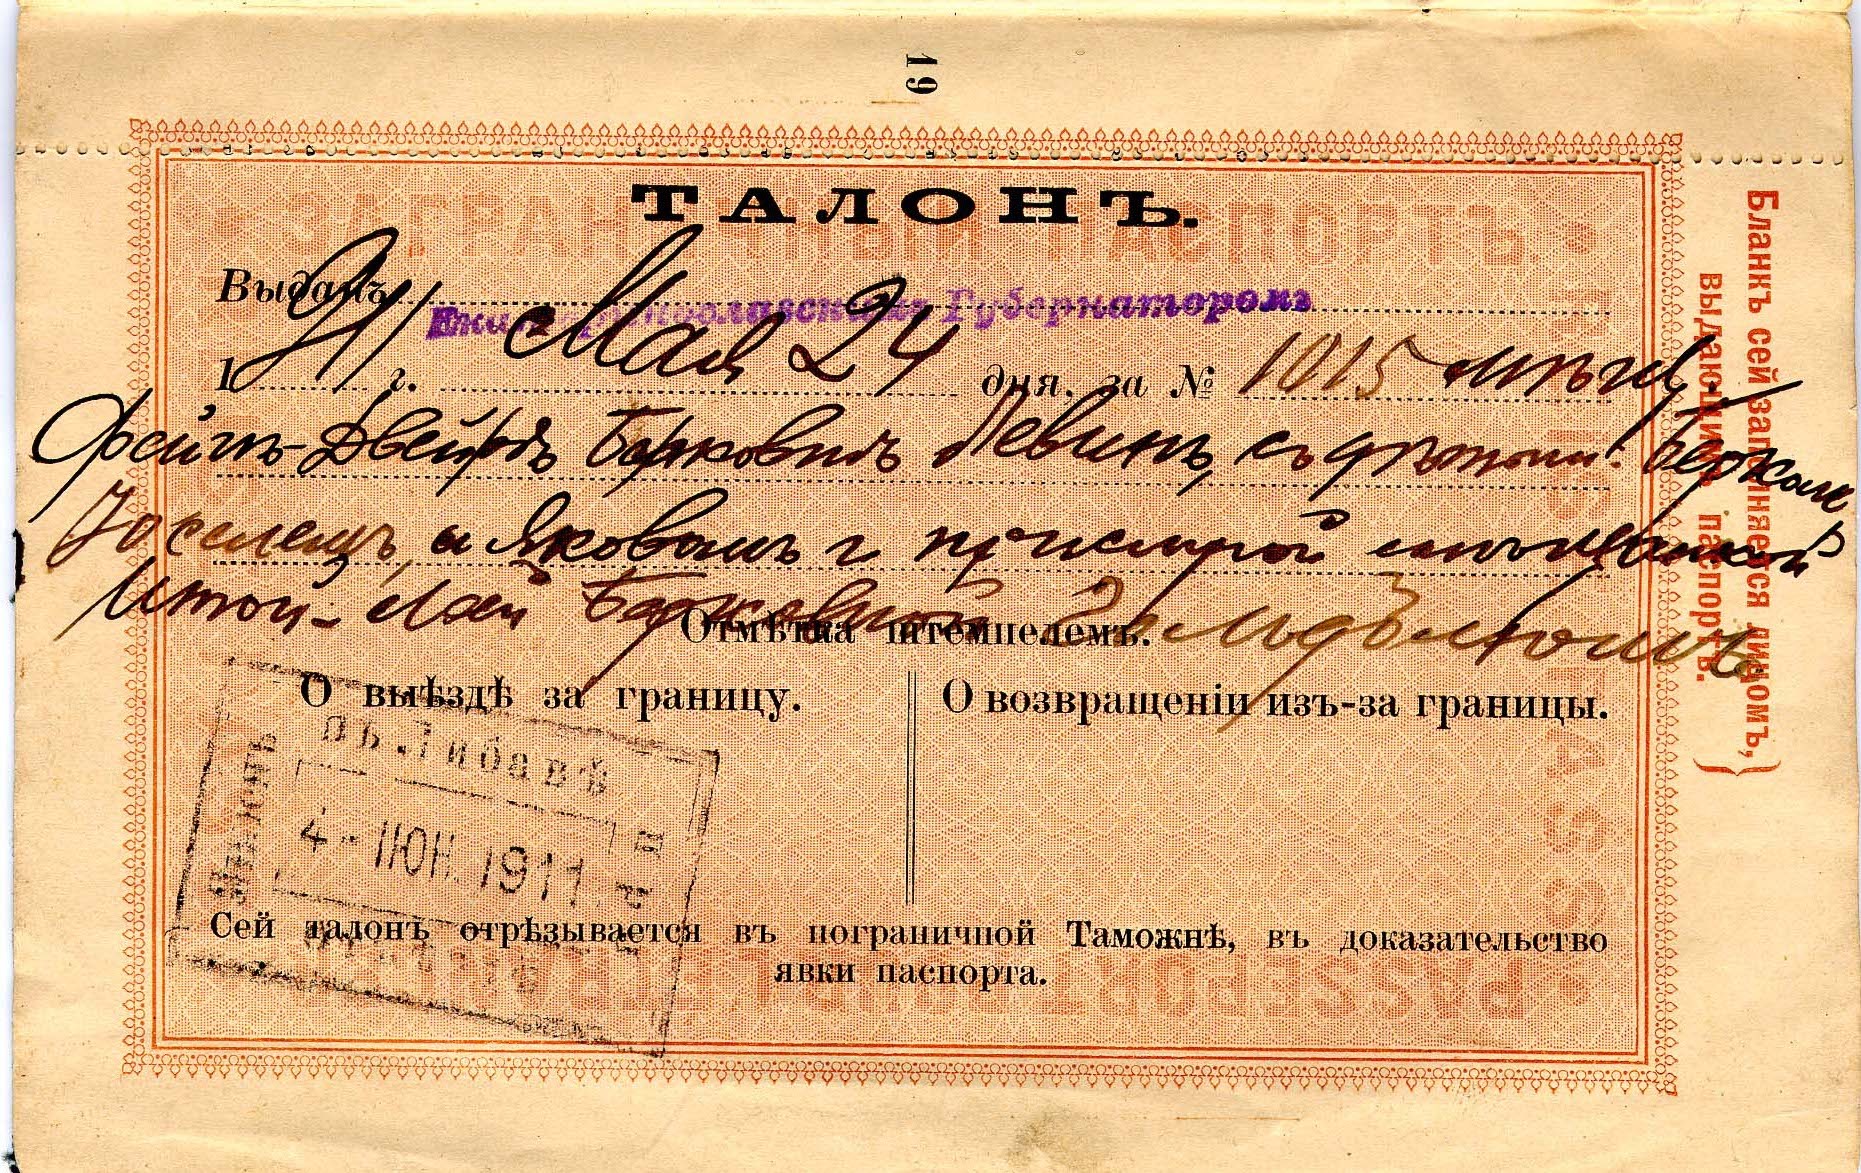 19
ТАЛОНЪ.
ЗАГРАНИЧНЫЙ ПАСПОРТЪ
Выданъ Екатеринославскимъ Губернаторомъ
1911 г. Мая 24 дня, за № 1015
Фейгѣ-Двейрѣ Берковнѣ Левинъ, съ дѣтьми: Беркомъ
Іоселемъ, и Яковомъ и прислугой
Итой-Лаей Берковной
Отмѣтка штемпелемъ.
О выѣздѣ за границу.
О возвращеніи изъ-за границы.
въ Либавѣ
4 - ІЮН. 1911
Сей талонъ отрѣзывается въ пограничной Таможнѣ, въ доказательство
явки паспорта.
Бланкъ сей заполняется лицомъ,
выдающимъ паспортъ.